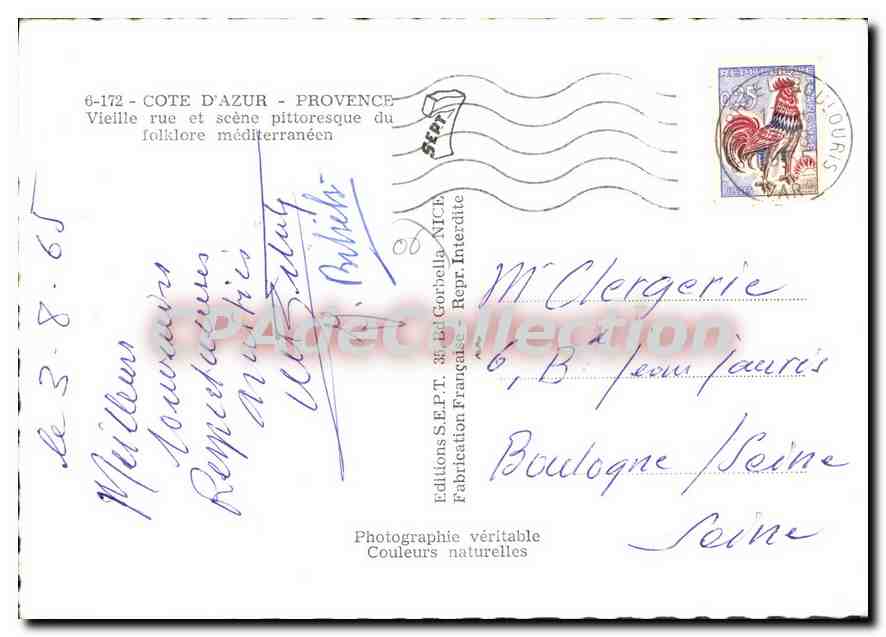 6-172 - COTE D'AZUR - PROVENCE
Vieille rue et scène pittoresque du
folklore méditerranéen
SEPT
0,25
VAR
le 3-8-65
Meilleurs
souvenirs
Respectueuses
Amitiés
Editions S.E.P.T. 35, Bd Gorbella NICE
Fabrication Française - Repr. Interdite
Mr Clergerie
6, Bd Jean Jauris
Boulogne /Seine
Seine
Photographie véritable
Couleurs naturelles
CPAdeCollection